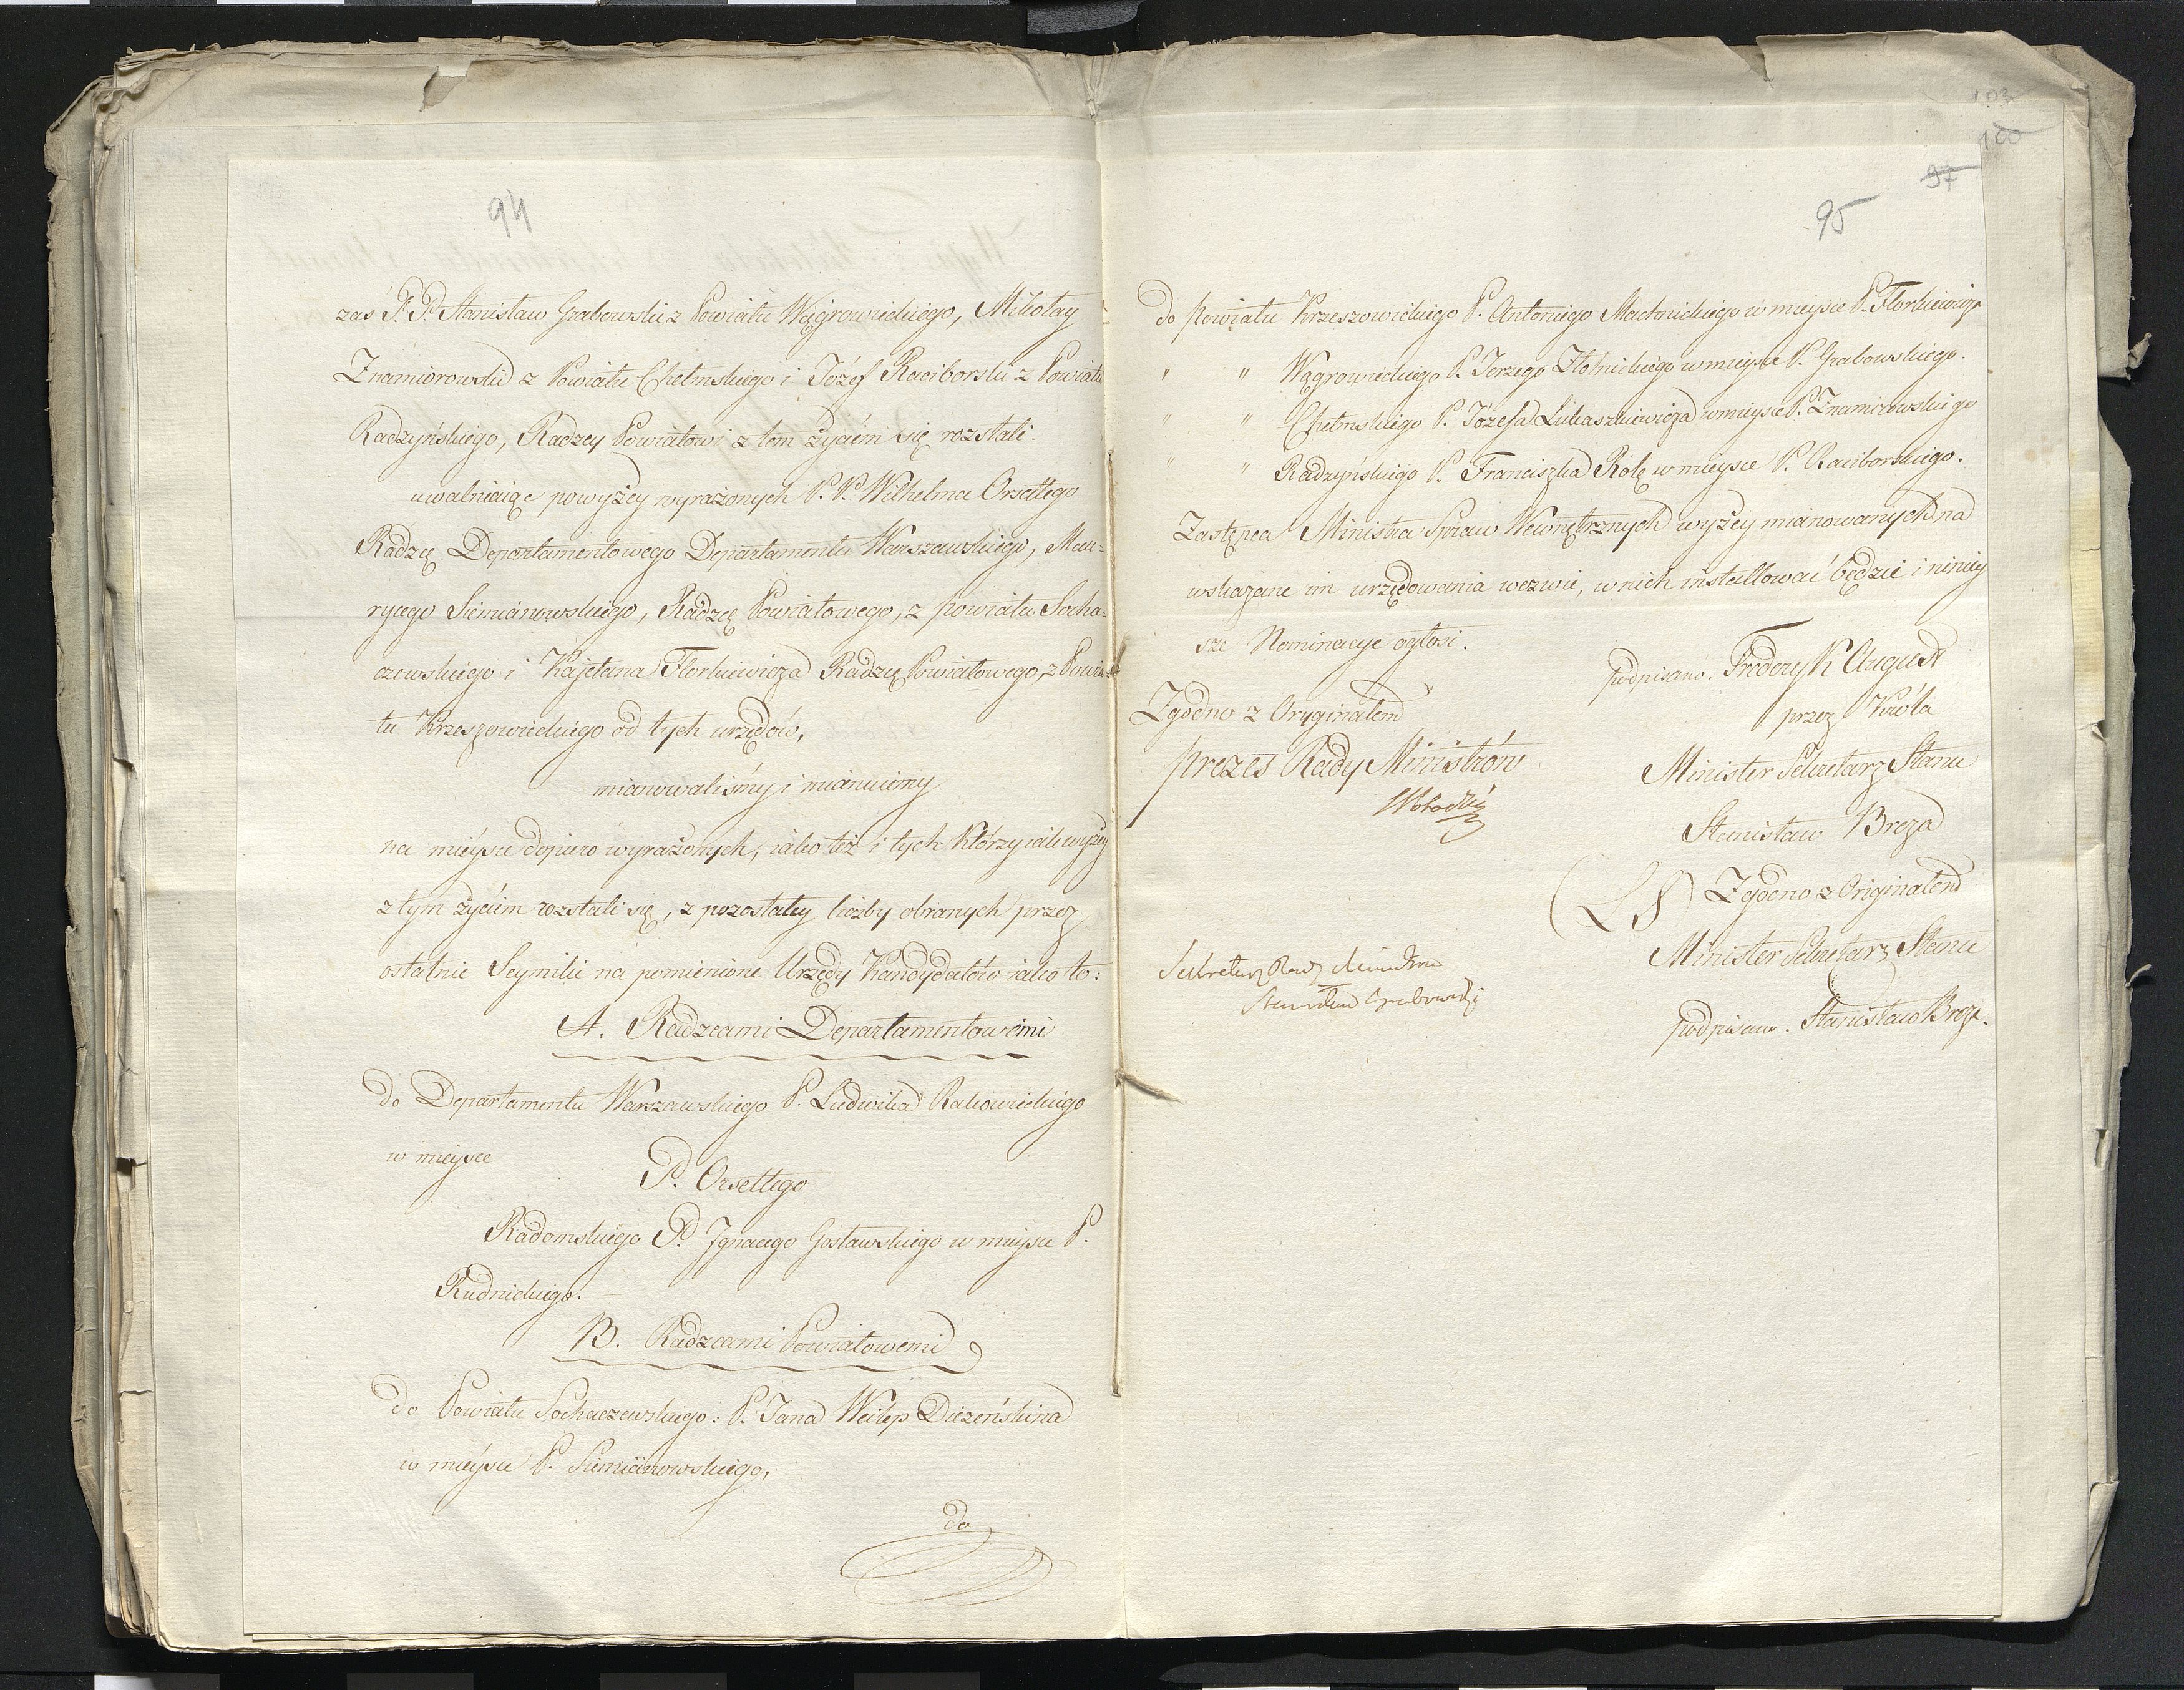 94
zaś P. P. Stanisław Grabowski z Powiatu Wągrowieckiego, Mikołay
Znamiorowski z Powiatu Chełmskiego i Józef Raciborski z Powiatu
Radzyńskiego, Radzcy Powiatowi z tem życiem się rozstali.
uwalniaiąc powyżey wyrażonych P. P. Wilhelma Orsettego
Radzcę Departamentowego Departamentu Warszawskiego, Mau=
rycego Siemianowskiego, Radzcę Powiatowego, z powiatu Socha=
czewskiego i Kajetana Florkiewicza Radzcę Powiatowego, z Powia=
tu Krzeszowickiego od tych urzędów,
mianowaliśmy i mianuiemy
na mieysce dopiero wyrażonych, iako też i tych którzy iak wyżey
z tym życiem rozstali się, z pozostałey liczby obranych przez
ostatnie Seymiki na pomienione Urzędy Kandydatów iako to:
A. Radzcami Departamentowemi
do Departamentu Warszawskiego P. Ludwika Rakowieckiego
w mieysce
P. Orsettego
Radomskiego P. Ignacego Gosławskiego w mieysce P.
Rudnickiego.
B. Radzcami Powiatowemi
do Powiatu Sochaczewskiego: P. Jana
w mieysce P. Siemianowskiego,
do
103
100
97
95
do powiatu Krzeszowickiego P. Antoniego Machnickiego w mieysce P. Florkiewicza
" " Wągrowieckiego P. Jerzego Złotnickiego w mieysce P. Grabowskiego.
" " Chełmskiego P. Józefa Łukaszkiewicza w mieysce P. Znamiorowskiego
" " Radzyńskiego P. Franciszka Rolę w mieysce P. Raciborskiego.
Zastępca Ministra Spraw Wewnętrznych wyżey mianowanych na
wskazane im urzędowania wezwie, w nich installować będzie i ninieÿ
sze Nominacye ogłosi.
podpisano. Frederyk August
przez Króla
Minister Sekretarz Stanu
Stanisław Breza
(L S) Zgodno z Originałem
Minister Sekretarz Stanu
podpisano. Stanisław Breza.
Zgodno z Oryginałem
prezes Rady Ministrów
Sekretarz Rady Ministrów
Stanisław Grabowski